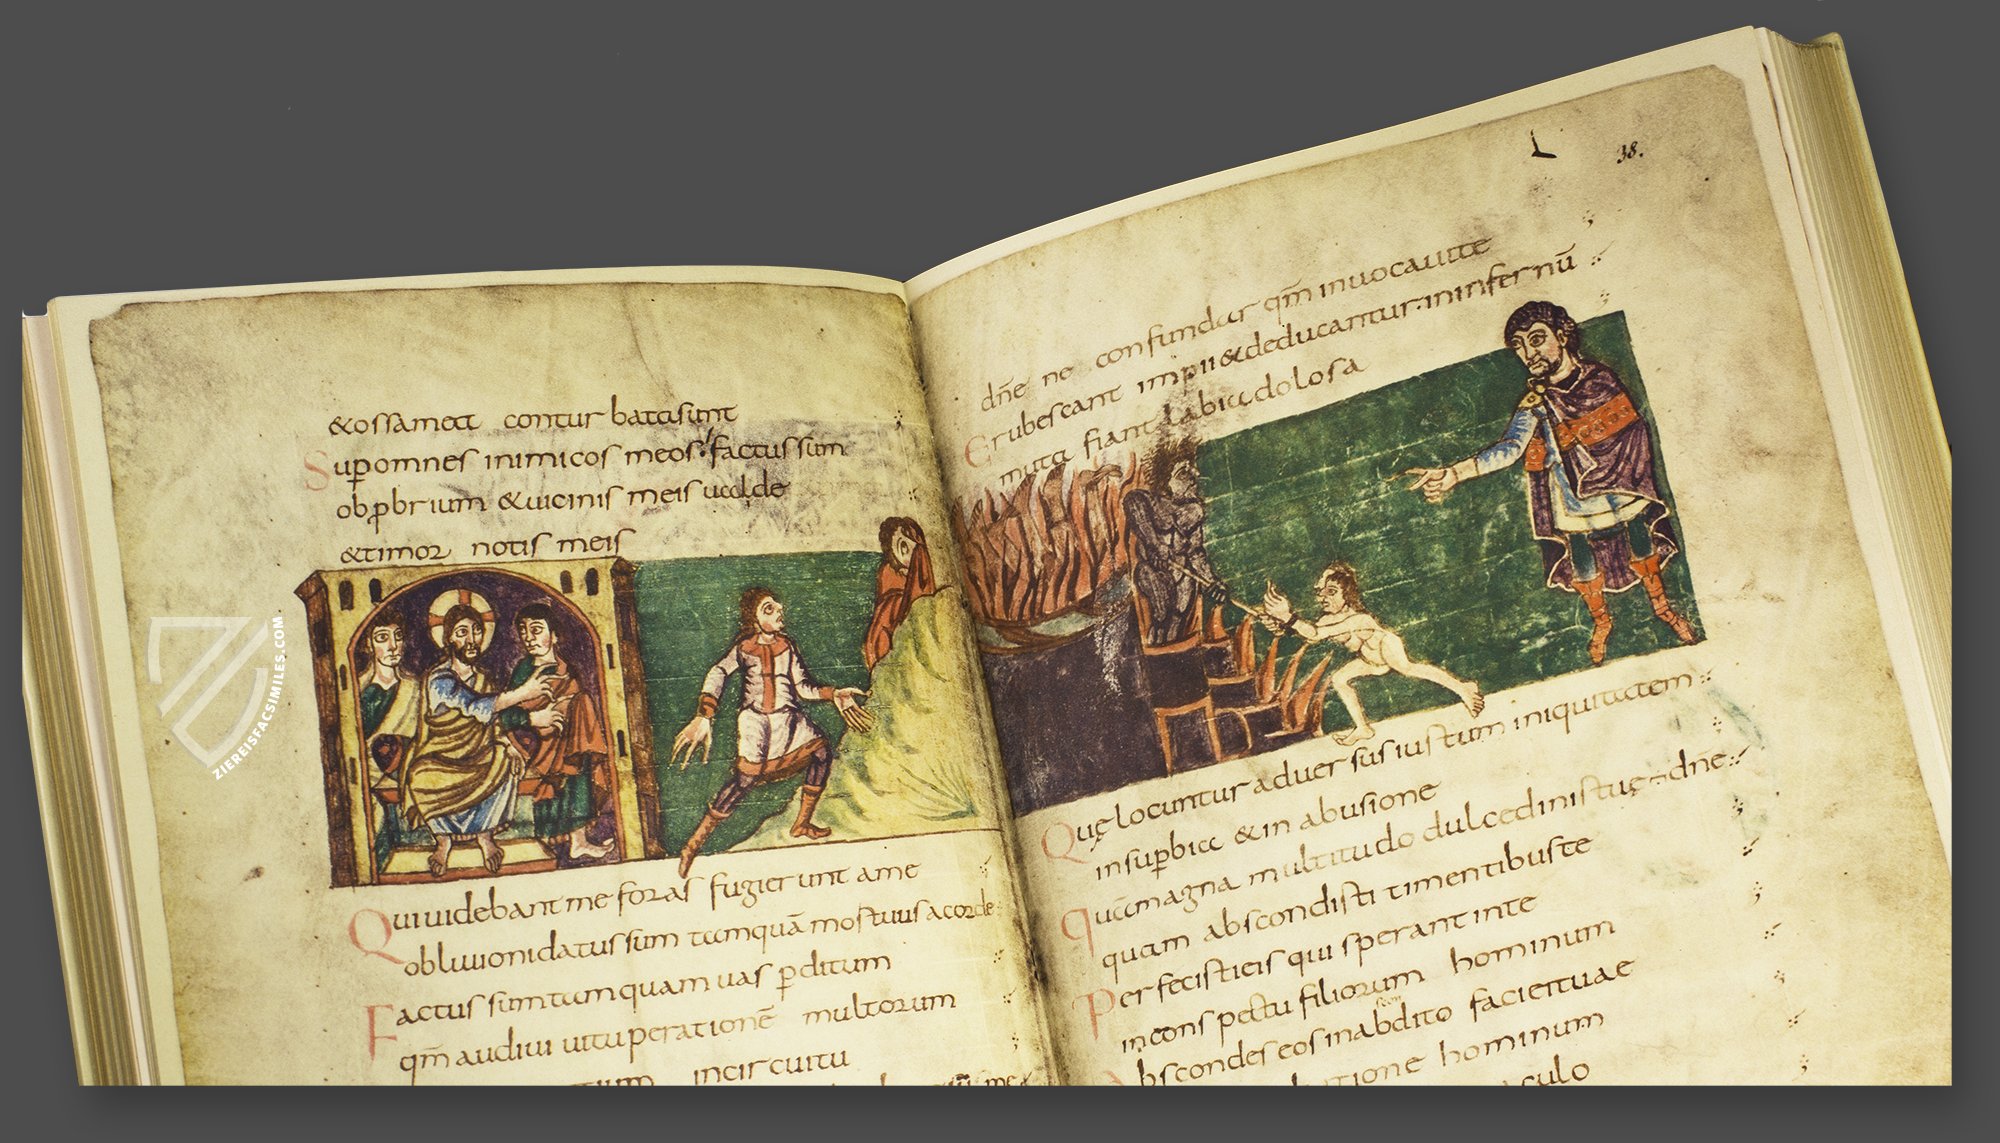 &ossamea conturbatasunt
Sup̄omnes inimicos meos factussum
obp̄brium &uicinis meis ualde
&timor notis meis
Quiuidebantme foras fugierunt ame
obliuionidatussum tamquā mortuus acorde
Factus sumtamquam uas p̄ditum
qm̄ audiui uituperationē multorum
incircuitu
38.
dn̄e ne confundar qm̄ inuocauite
Erubescant impii &deducantur ininfernū
muta fiant labia dolosa
Quę locuntur aduersus iustum iniquitatem
insup̄bia & in abusione
Quam magna multitudo dulcedinis tuę dn̄e
quam abscondisti timentibus te
Perfecistieis qui sperant inte
inconspectu filiorum hominum
Abscondes eos inabdito facientuae
hominum
ZIEREISFACSIMILES.COM